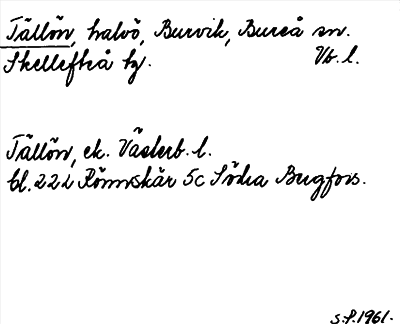 Tällön, halvö, Burvik, Bureå sn.
Skellefteå tg. Vb. l.
Tällön, ek. Västerb. l.
bl. 22 L Rönnskär 5c Södra Bergfors.
S.P. 1961.